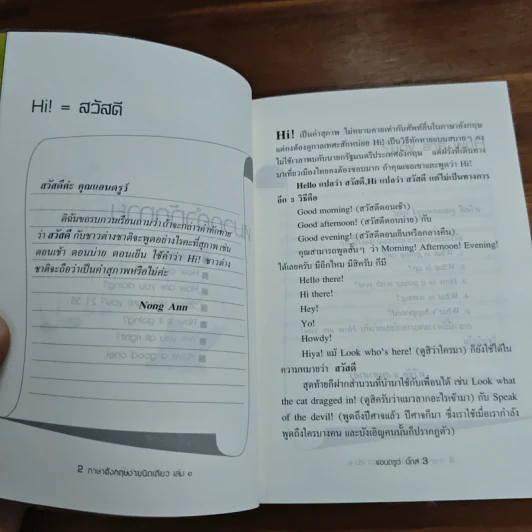 Hi! = สวัสดี
สวัสดีค่ะ คุณแอนดรูว์
ดิฉันขอรบกวนเรียนถามว่า ถ้าจะกล่าวคำทักทาย
ว่า สวัสดี กับชาวต่างชาติจะพูดอย่างไรคะที่สุภาพ เช่น
ตอนเช้า ตอนบ่าย ตอนเย็น ใช้คำว่า Hi! ชาวต่าง
ชาติจะถือว่าเป็นคำสุภาพหรือไม่ค่ะ
Nong Ann
2 ภาษาอังกฤษง่ายนิดเดียว เล่ม ๑
Hi! เป็นคำสุภาพ ไม่หยาบคายเท่ากับศัพท์อื่นในภาษาอังกฤษ
แต่คงต้องดูกาลเทศะสักหน่อย Hi! เป็นวิธีทักทายแบบสบายๆ คง
ไม่ใช้เวลาพบกับนายกรัฐมนตรีประเทศอังกฤษ แต่ฝรั่งที่เดินทาง
มาเที่ยวเมืองไทยคงต้องชอบมาก ถ้าคุณเจอเขาและพูดว่า Hi!
Hello แปลว่า สวัสดี, Hi แปลว่า สวัสดี แต่ไม่เป็นทางการ
อีก 3 วิธีคือ
Good morning! (สวัสดีตอนเช้า)
Good afternoon! (สวัสดีตอนบ่าย) กับ
Good evening! (สวัสดีตอนเย็นหรือกลางคืน)
คุณสามารถพูดสั้นๆ ว่า Morning! Afternoon! Evening!
ได้เลยครับ มีอีกไหม มีสิครับ ก็มี
Hello there!
Hi there!
Hey!
Yo!
Howdy!
Hiya! แม้ Look who's here! (ดูสิว่าใครมา) ก็ยังใช้ได้ใน
ความหมายว่า สวัสดี
สุดท้ายก็ฝากสำนวนที่นำมาใช้กับเพื่อนได้ เช่น Look what
the cat dragged in! (ดูสิครับว่าแมวลากอะไรเข้ามา) กับ Speak
of the devil! (พูดถึงปีศาจแล้ว ปีศาจก็มา ซึ่งเราใช้เมื่อเรากำลัง
พูดถึงใครบางคน และบังเอิญคนนั้นก็ปรากฏตัว)
แอนดรูว์ บิ๊กส์ 3